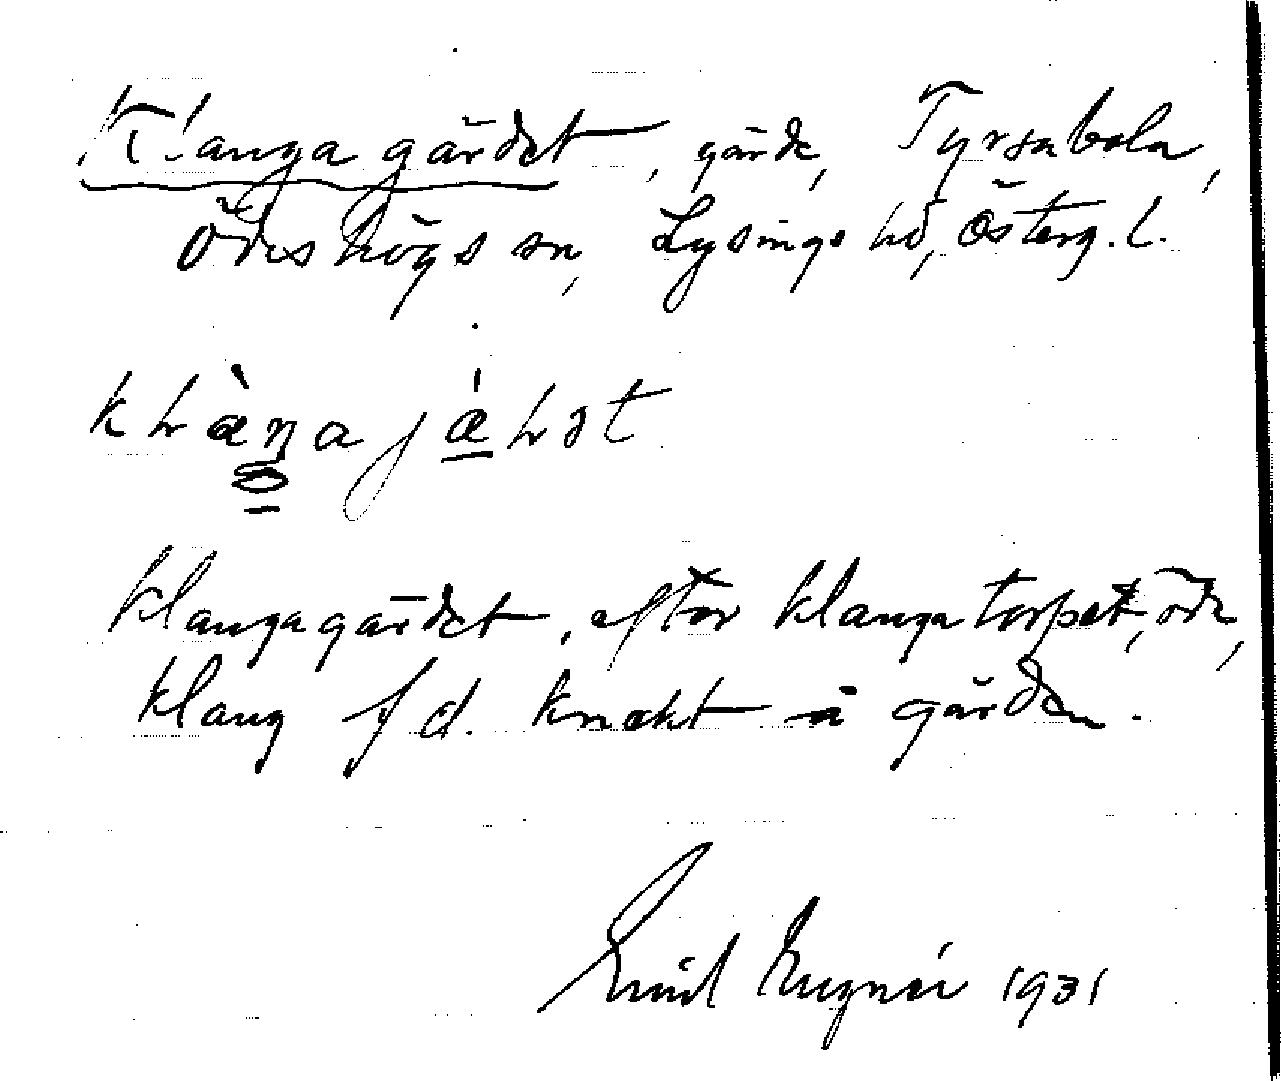 Klangagärdet, gärde, Tyrsabola,
Ödeshögs sn, Lysings hd, Österg. l.
Klangagärdet, efter Klangatorpet, öde,
Klang f d. knekt å gården.
Emil 1931